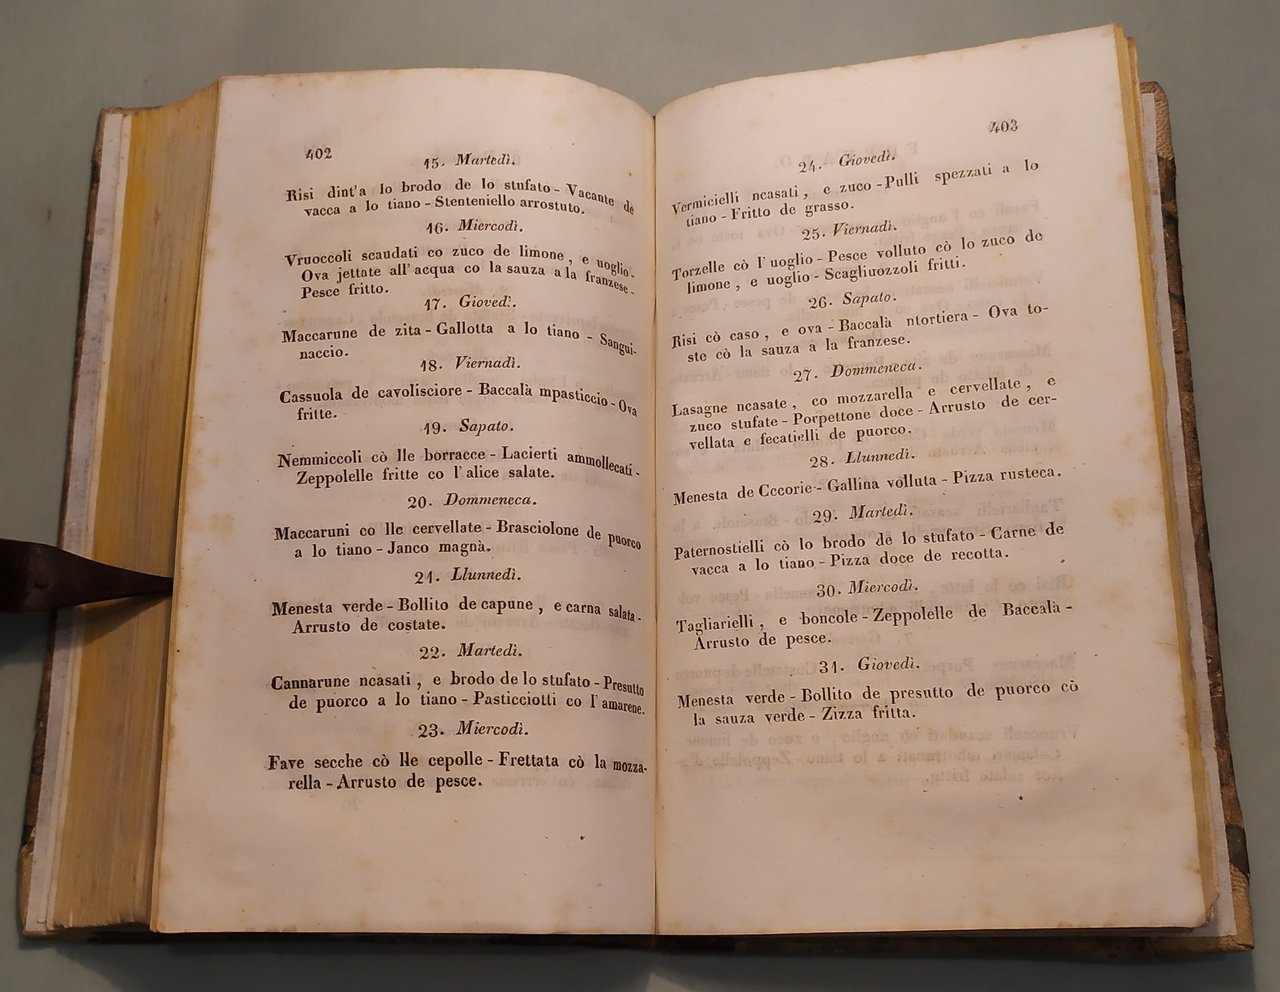 402
15. Martedì.
Risi dint'a lo brodo de lo stufato - Vacante de
vacca a lo tiano - Stenteniello arrostuto.
16. Miercodì.
Vruoccoli scaudati co zuco de limone, e uoglio-
Ova jettate all'acqua co la sauza a la franzese-
Pesce fritto.
17. Giovedì.
Maccarune de zita - Gallotta a lo tiano - Sangui-
naccio.
18. Viernadì.
Cassuola de cavolisciore - Baccalà mpasticcio - Ova
fritte.
19. Sapato.
Nemmiccoli cò lle borracce - Lacierti ammollecati-
Zeppolelle fritte co l'alice salate.
20. Dommeneca.
Maccaruni co lle cervellate - Brasciolone de puorco
a lo tiano - Janco magnà.
21. Llunnedì.
Menesta verde - Bollito de capune, e carna salata-
Arrusto de costate.
22. Martedì.
Cannarune ncasati, e brodo de lo stufato - Presutto
de puorco a lo tiano - Pasticciotti co l'amarene.
23. Miercodì.
Fave secche cò lle cepolle - Frettata cò la mozza-
rella - Arrusto de pesce.
403
24. Giovedì.
Vermicielli ncasati, e zuco - Pulli spezzati a lo
tiano - Fritto de grasso.
25. Viernadì.
Torzelle cò l'uoglio - Pesce volluto cò lo zuco de
limone, e uoglio - Scagliuozzoli fritti.
26. Sapato.
Risi cò caso, e ova - Baccalà ntortiera - Ova to-
ste cò la sauza a la franzese.
27. Dommeneca.
Lasagne ncasate, co mozzarella e cervellate, e
zuco stufate - Porpettone doce - Arrusto de cer-
vellata e fecatielli de puorco.
28. Llunnedì.
Menesta de Cccorie - Gallina volluta - Pizza rusteca.
29. Martedì.
Paternostielli cò lo brodo de lo stufato - Carne de
vacca a lo tiano - Pizza doce de recotta.
30. Miercodì.
Tagliarielli, e boncole - Zeppolelle de Baccalà -
Arrusto de pesce.
31. Giovedì.
Menesta verde - Bollito de presutto de puorco cò
la sauza verde - Zizza fritta.